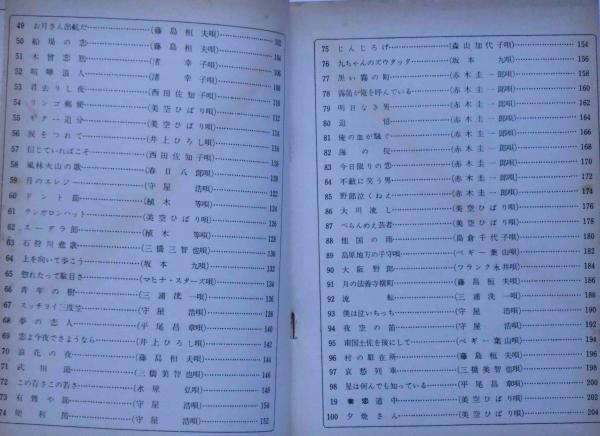 49 お月さん出航だ…(藤島桓夫唄)…102
50 船場の恋…(藤島桓夫唄)…104
51 木曾恋節…(渚幸子唄)…106
52 喧嘩浪人…(渚幸子唄)…108
53 君去りし夜…(西田佐知子唄)…110
54 リンゴ郵便…(美空ひばり唄)…112
55 ギター追分…(美空ひばり唄)…114
56 涙をつれて…(井上ひろし唄)…116
57 信じていればこそ…(西田佐知子唄)…118
58 風林火山の歌…(春日八郎唄)…120
59 月のエレジー…(守屋浩唄)…122
60 ドント節…(植木等唄)…124
61 テンガロンハット…(美空ひばり唄)…126
62 スーダラ節…(植木等唄)…128
63 石狩川悲歌…(三橋三智也唄)…130
64 上を向いて歩こう…(坂本九唄)…132
65 惚れたって駄目さ…(マヒナ・スターズ唄)…134
66 青年の樹…(三浦洸一唄)…136
67 スッチョイ三度笠…(守屋浩唄)…138
68 夢の恋人…(平尾昌章唄)…140
69 恋よ今夜でさようなら…(井上ひろし唄)…142
70 浪花の夜…(藤島桓夫唄)…144
71 武田節…(三橋美智也唄)…146
72 この若さこの若さ…(水原弘唄)…148
73 有難や節…(守屋浩唄)…150
74 便利節…(守屋浩唄)…152
75 じんじろげ…(森山加代子唄)…154
76 九ちゃんのズウタッタ…(坂本九唄)…156
77 黒い霧の町…(赤木圭一郎唄)…158
78 霧笛が俺を呼んでいる…(赤木圭一郎唄)…160
79 明日なき男…(赤木圭一郎唄)…162
80 追憶…(赤木圭一郎唄)…164
81 俺の血が騒ぐ…(赤木圭一郎唄)…166
82 海の掟…(赤木圭一郎唄)…168
83 今日限りの恋…(赤木圭一郎唄)…170
84 不敵に笑う男…(赤木圭一郎唄)…172
85 野郎泣くねえ…(赤木圭一郎唄)…174
86 大川流し…(美空ひばり唄)…176
87 べらんめえ芸者…(美空ひばり唄)…178
88 他国の雨…(島倉千代子唄)…180
89 島原地方の子守唄…(ペギー葉山唄)…182
90 大阪野郎…(フランク永井唄)…184
91 月の法善寺横町…(藤島桓夫唄)…186
92 流転…(三浦洸一唄)…188
93 僕は泣いちっち…(守屋浩唄)…190
94 夜空の笛…(守屋浩唄)…192
95 南国土佐を後にして…(ペギー葉山唄)…194
96 村の駐在所…(藤島桓夫唄)…196
97 哀愁列車…(三橋美智也唄)…196
98 星は何んでも知っている…(平尾昌章唄)…200
19 道中…(美空ひばり唄)…202
100 夕焼さん…(美空ひばり唄)…204